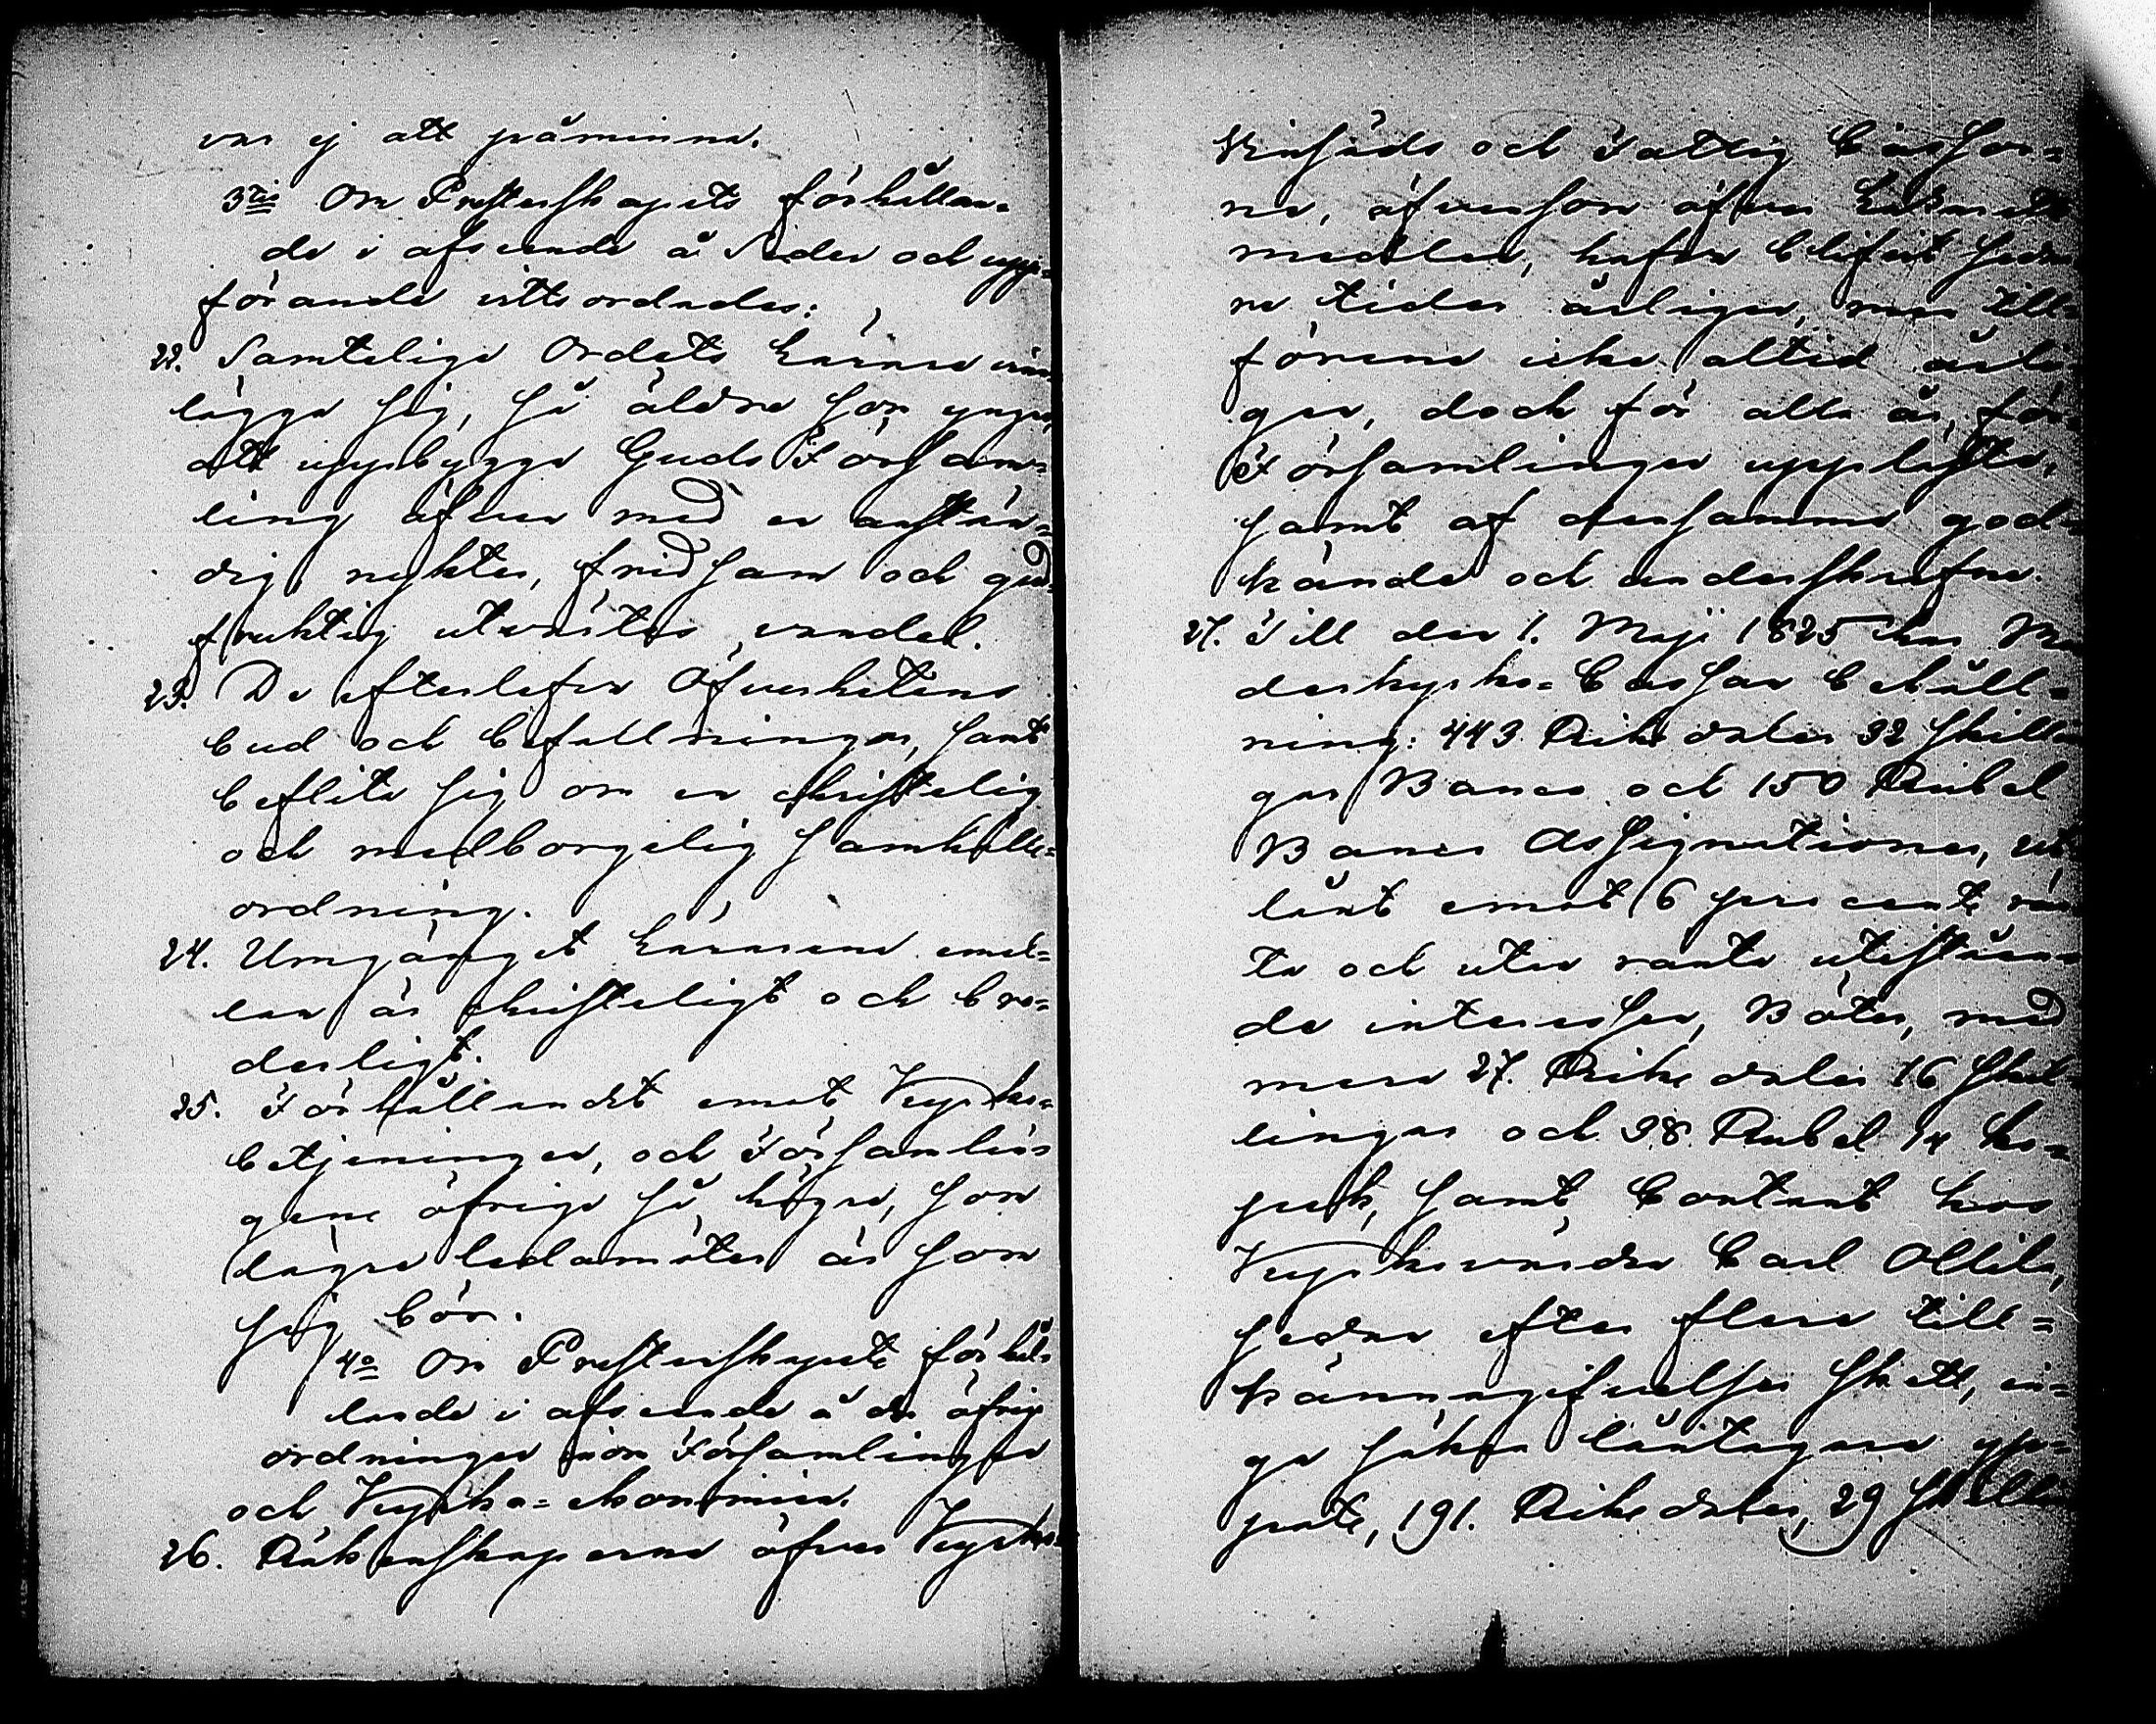 var ej att påminna.
3tio Om Presterskapets förhållan=
de i afseende å Seder och upp=
förande vittsordades:
22. Samtelige Ordets Lärare vin
lägga sig, så äldre som yngre,
att uppbygga Guds Försam=
ling äfven med en anstän=
dig, nykter, fridsam och gud=
fruktig utvärtes vandel.
23. De efterlefva Öfverhetens
bud och befallningar, samt
beflita sig om en christelig
och medborgelig samhälls=
ordning.
24. Umgänget Lärarena emel=
lan är christeligt och bro=
derligt.
25. Förhållandet emot Kyrko=
betjeningen, och Församlin
gens öfriga så högre, som
lägre ledamöter är som
sig bör.
4o Om Presterskapets förhål
lande i afseende å de öfrig
ordningen inom Församlingen
och Kyrko=ekonomien.
26. Räkenskaperna öfver Kyrko=
och Fattig Cassor=
na, äfvensom öfver
medlen, hafva blifvit sedna
re tider årligen, men till
förene icke altid årli
gen, doch för alla år, för
Församlingen uppläste,
samt af densamma god=
kände och underskrefne.
27. Till den 1. Maji 1825 har Mo
derkyrko=Cassan behåll=
ning: 443 Riksdaler 32 skillin
gar Banco och 150 Rubel
Banco Assignationer, ut
lånt emot 6 pro cents rän
ta och utan ranta uteståen
de interessen, Böter, med
mera 27. Riksdaler 16 skil
lingar och 38 Rubel 14 ko=
pek, samt Contant hos
Kyrkovärden Carl Ollila,
sedan efter flera till=
kännagifvelser skett, in=
ga säkra låntagare yp=
pats, 191. Riksdaler, 29 skillin